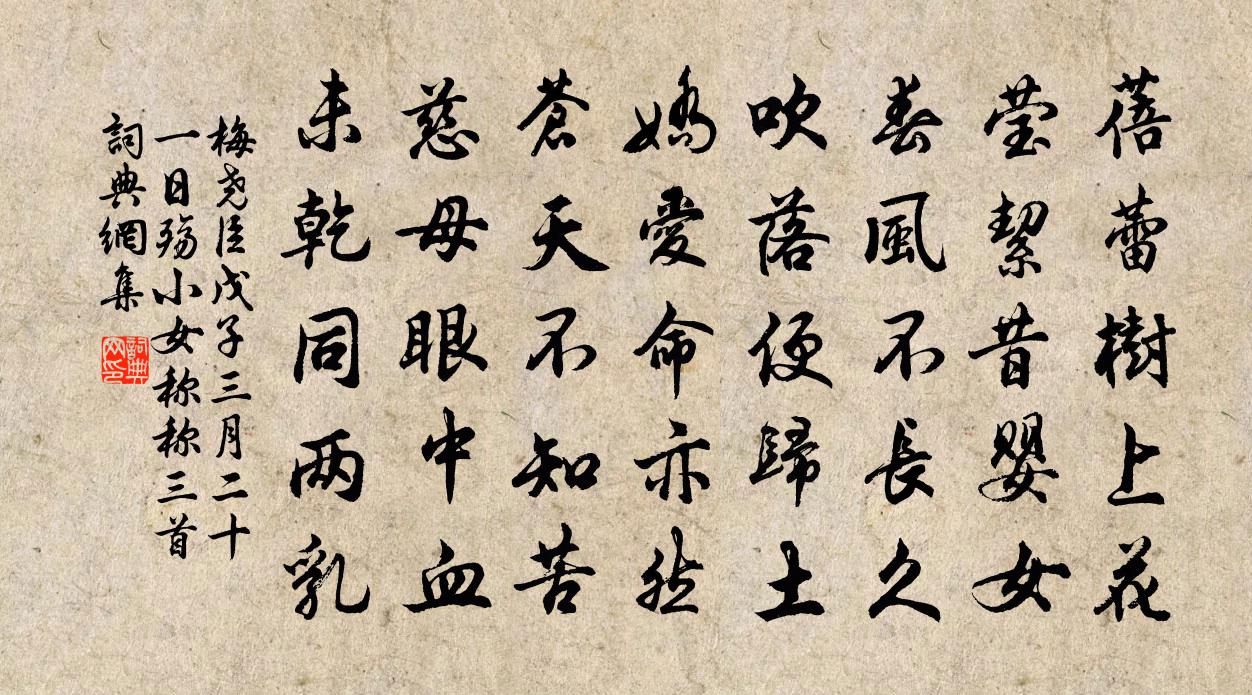 蓓蕾樹上花
莹絜昔嬰女
春風不長久
吹落便歸土
嬌愛命亦然
蒼天不知苦
慈母眼中血
未乾同两乳
梅尧臣戊子三月二十
一日殇小女称称三首
詞典網集
詞典网印